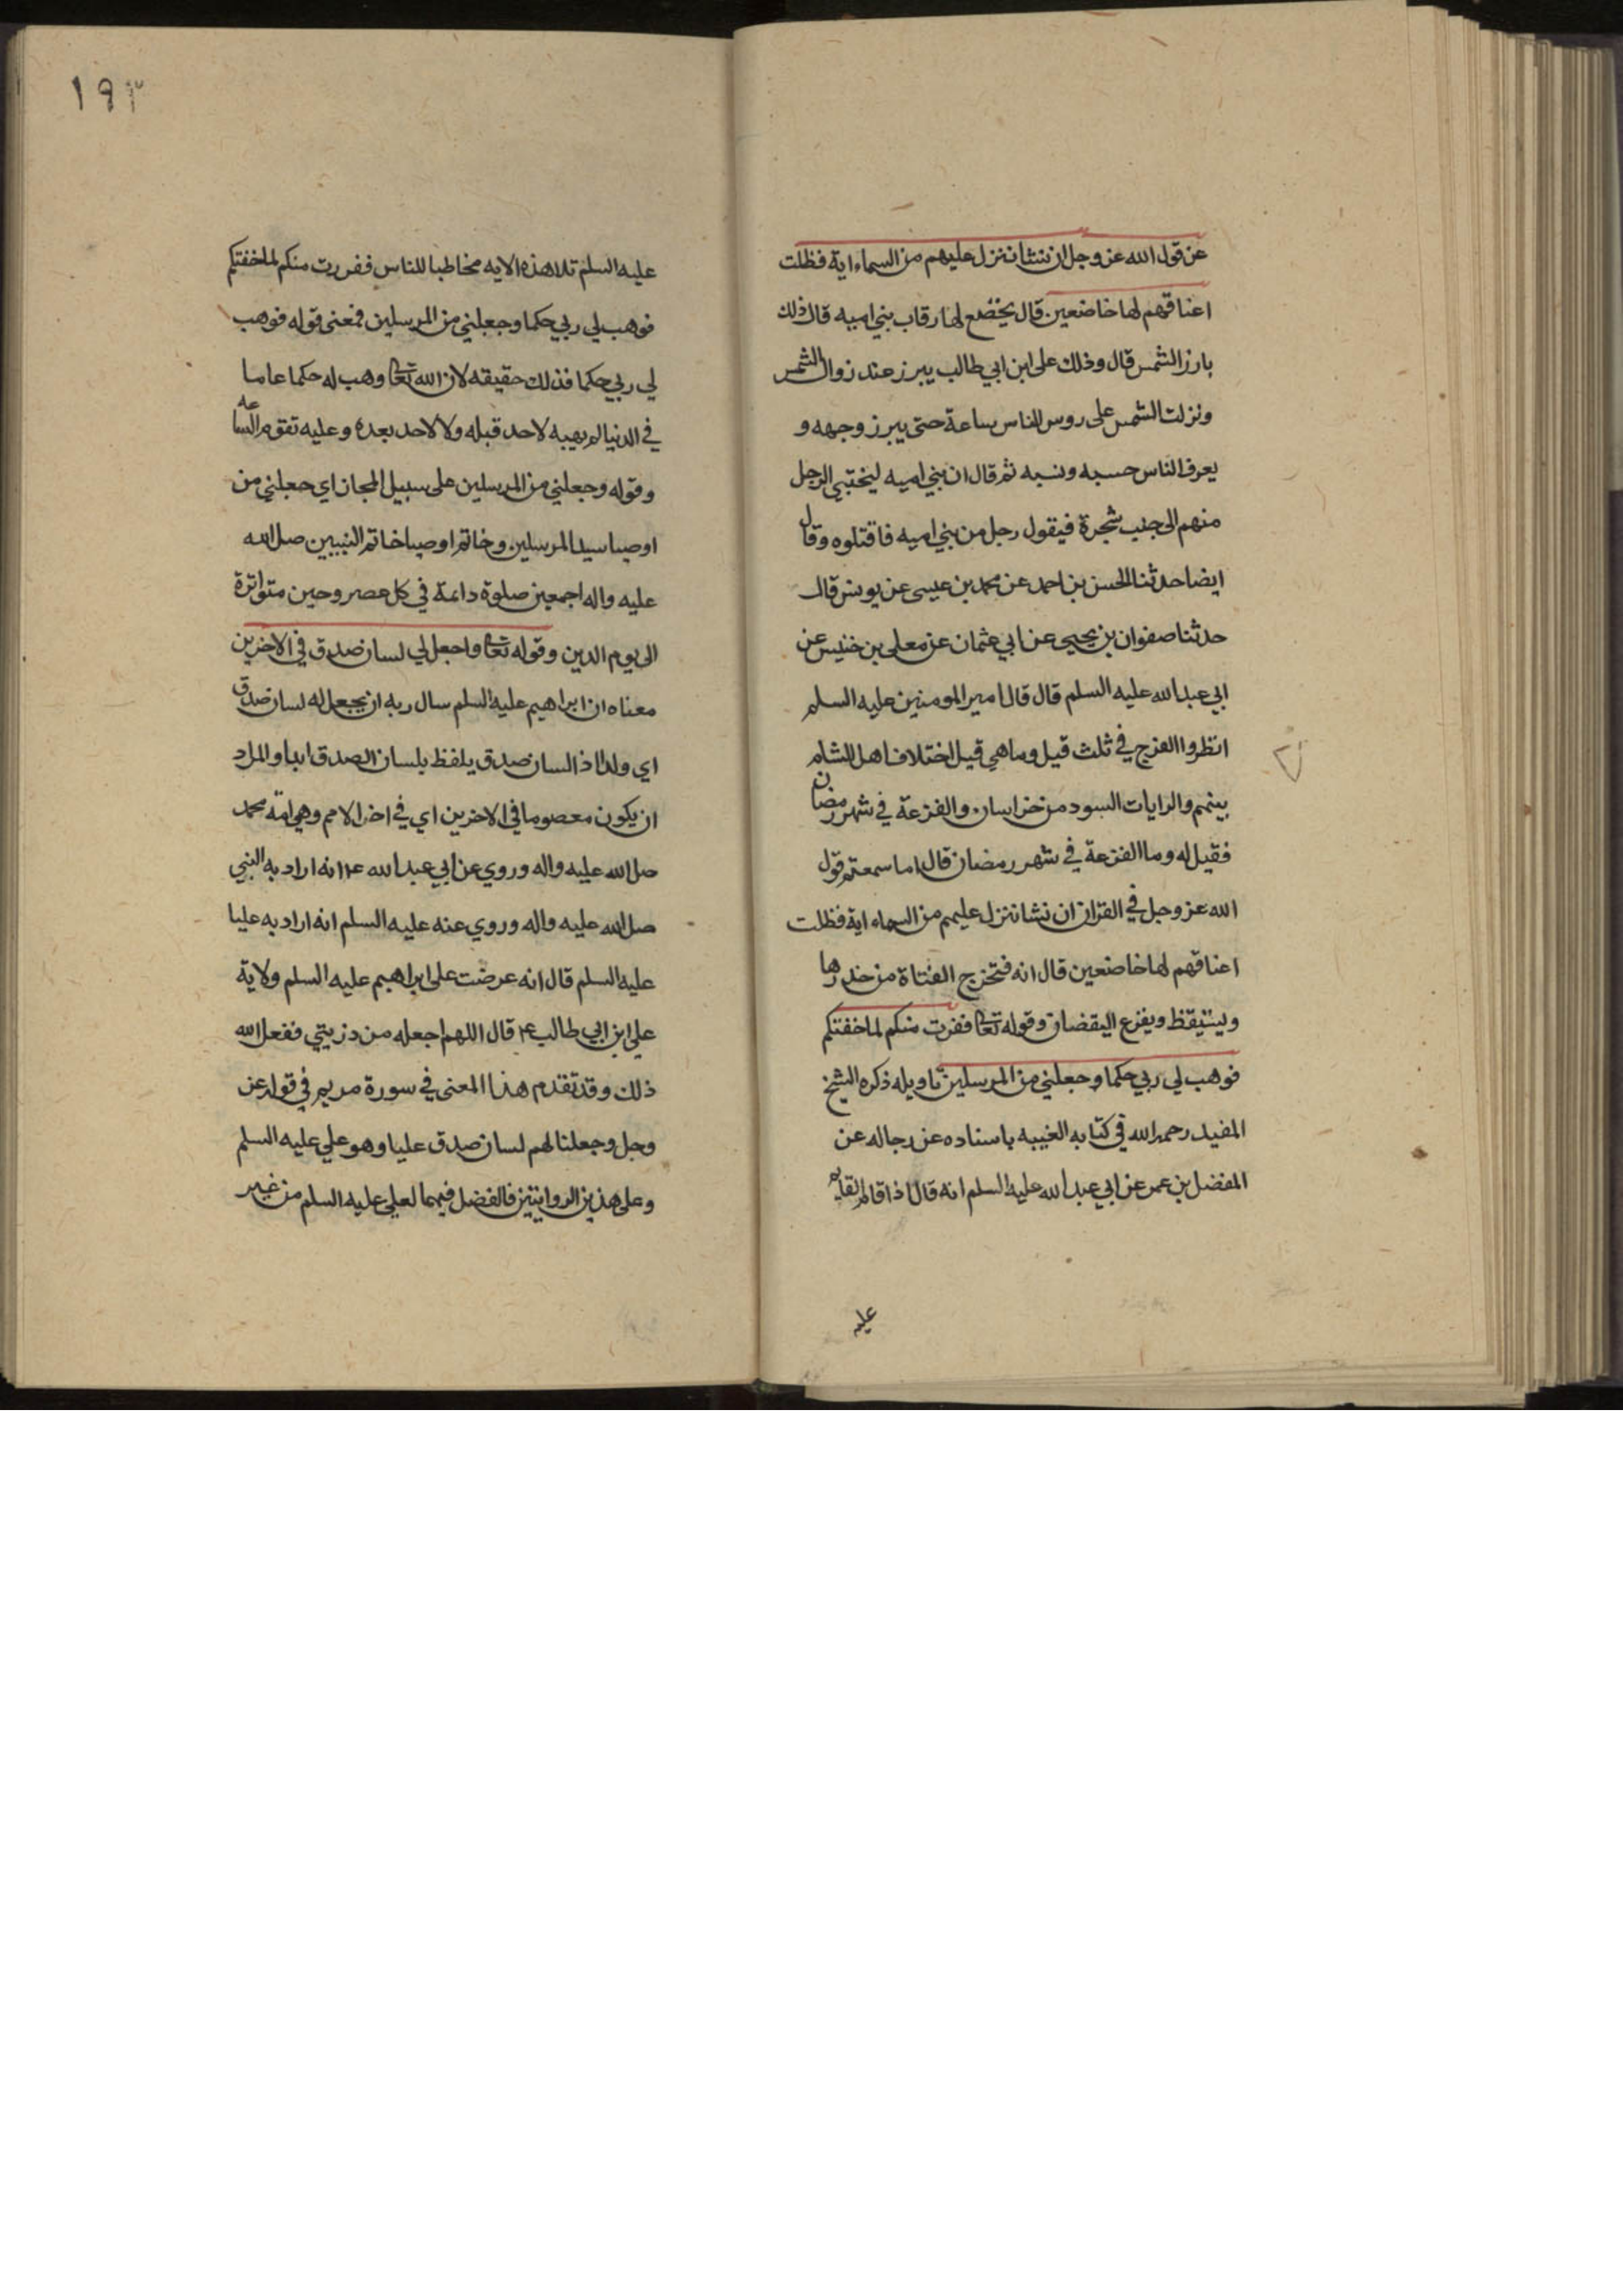 عن قول الله عز وجل ان نشا ننزل عليهم من السماء اية فظلت
اعناقهم لها خاضعين قال يخضع لها رقاب بني اميه قال ذلك
بارز الشمس قال وذلك علي ابن ابي طالب يبرز عند زوال الشمس
ونزلت الشمس على روس الناس ساعة حتى يبرز وجهه و
يعرف الناس حسبه ونسبه ثم قال ان بني اميه ليختبي الرجل
منهم الى جنب شجرة فيقول رجل من بني اميه فاقتلوه وقال
ايضا حدثنا الحسن بن احمد عن محمد بن عيسى عن يونس قال
حدثنا صفوان بن يحيى عن ابي عثمان عن معلى بن خنيس عن
ابي عبد الله عليه السلم قال قال امير المومنين عليه السلم
انظروا الفرج في ثلث قيل وما هي قيل اختلاف اهل الشام
بينهم والرايات السود من خراسان والفزعة في شهر رمضان
فقيل له وما الفزعة في شهر رمضان قال اما سمعتم قول
الله عز وجل في القران ان نشا ننزل عليهم من السماء اية فظلت
اعناقهم لها خاضعين قال انه فتخرج الفتاة من خدرها
ويستيقظ ويفزع اليقضان وقوله تعا ففرت منكم لما خفتكم
فوهب لي ربي حكما وجعلني من المرسلين تاويله ذكره الشيخ
المفيد رحمه الله في كتابه الغيبه باسناده عن رجاله عن
المفضل بن عمر عن ابي عبد الله عليه السلم انه قال اذا قام القايم
عليه
١٩٣
عليه السلم تلا هذه الايه مخاطبا للناس ففررت منكم لما خفتكم
فوهب لي ربي حكما وجعلني من المرسلين فمعنى قوله فوهب
لي ربي حكما فذلك حقيقه لان الله تعا وهب له حكما عاما
في الدنيا لم يهبه لاحد قبله ولا لاحد بعده وعليه تقوم الساعه
وقوله وجعلني من المرسلين على سبيل المجاز اي جعلني من
اوصيا سيد المرسلين وخاتم اوصيا خاتم النبيين صلى الله
عليه واله اجمعين صلوة دائمة في كل عصر وحين متواترة
الى يوم الدين وقوله تعا واجعل لي لسان صدق في الاخرين
معناه ان ابراهيم عليه السلم سال ربه ان يجعل له لسان صدق
اي ولدا ذا لسان صدق يلفظ بلسان الصدق ابدا والمراد
ان يكون معصوما في الاخرين اي في اخر الامم وهي امة محمد
صلى الله عليه واله وروي عن ابي عبد الله ع انه اراد به النبي
صلى الله عليه واله وروي عنه عليه السلم انه اراد به عليا
عليه السلم قال انه عرضت على ابراهيم عليه السلم ولاية
علي ابن ابي طالب ع قال اللهم اجعله من ذريتي ففعل الله
ذلك وقد تقدم هذا المعنى في سورة مريم في قوله عز
وجل وجعلنا لهم لسان صدق عليا وهو علي عليه السلم
وعلى هذين الروايتين فالفضل فيهما لعلي عليه السلم من غير